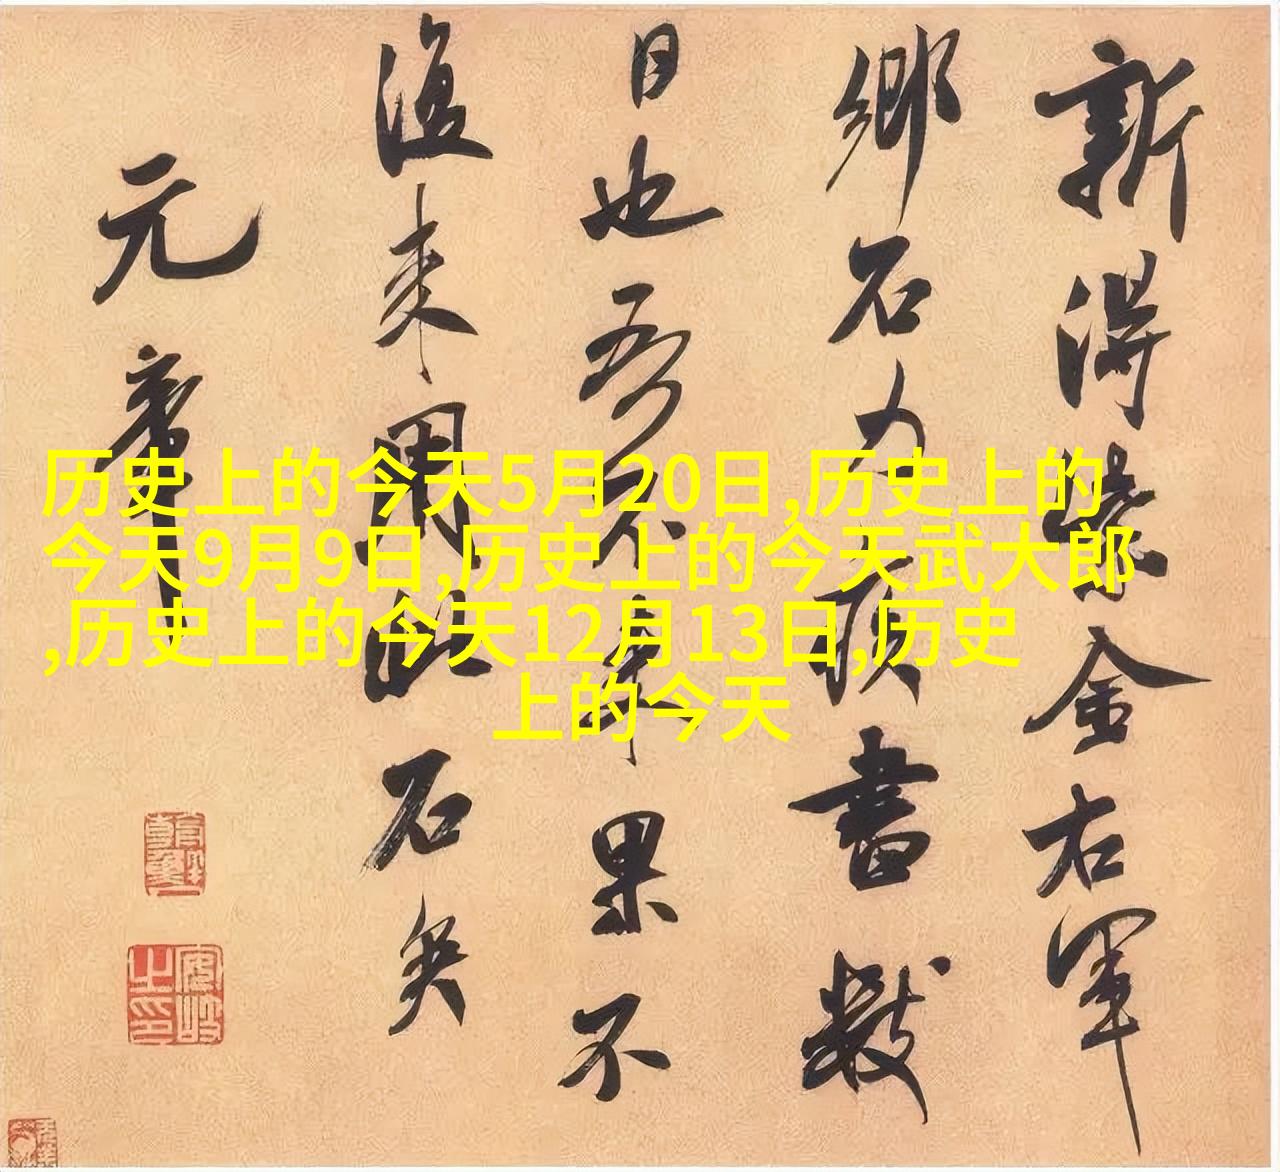 新得紫金右軍
鄉石力疾書數
日也吾不来果不
復来用此石矣
元章
历史上的今天5月20日,历史上的
今天9月9日,历史上的今天武大郎
,历史上的今天12月13日,历史
上的今天